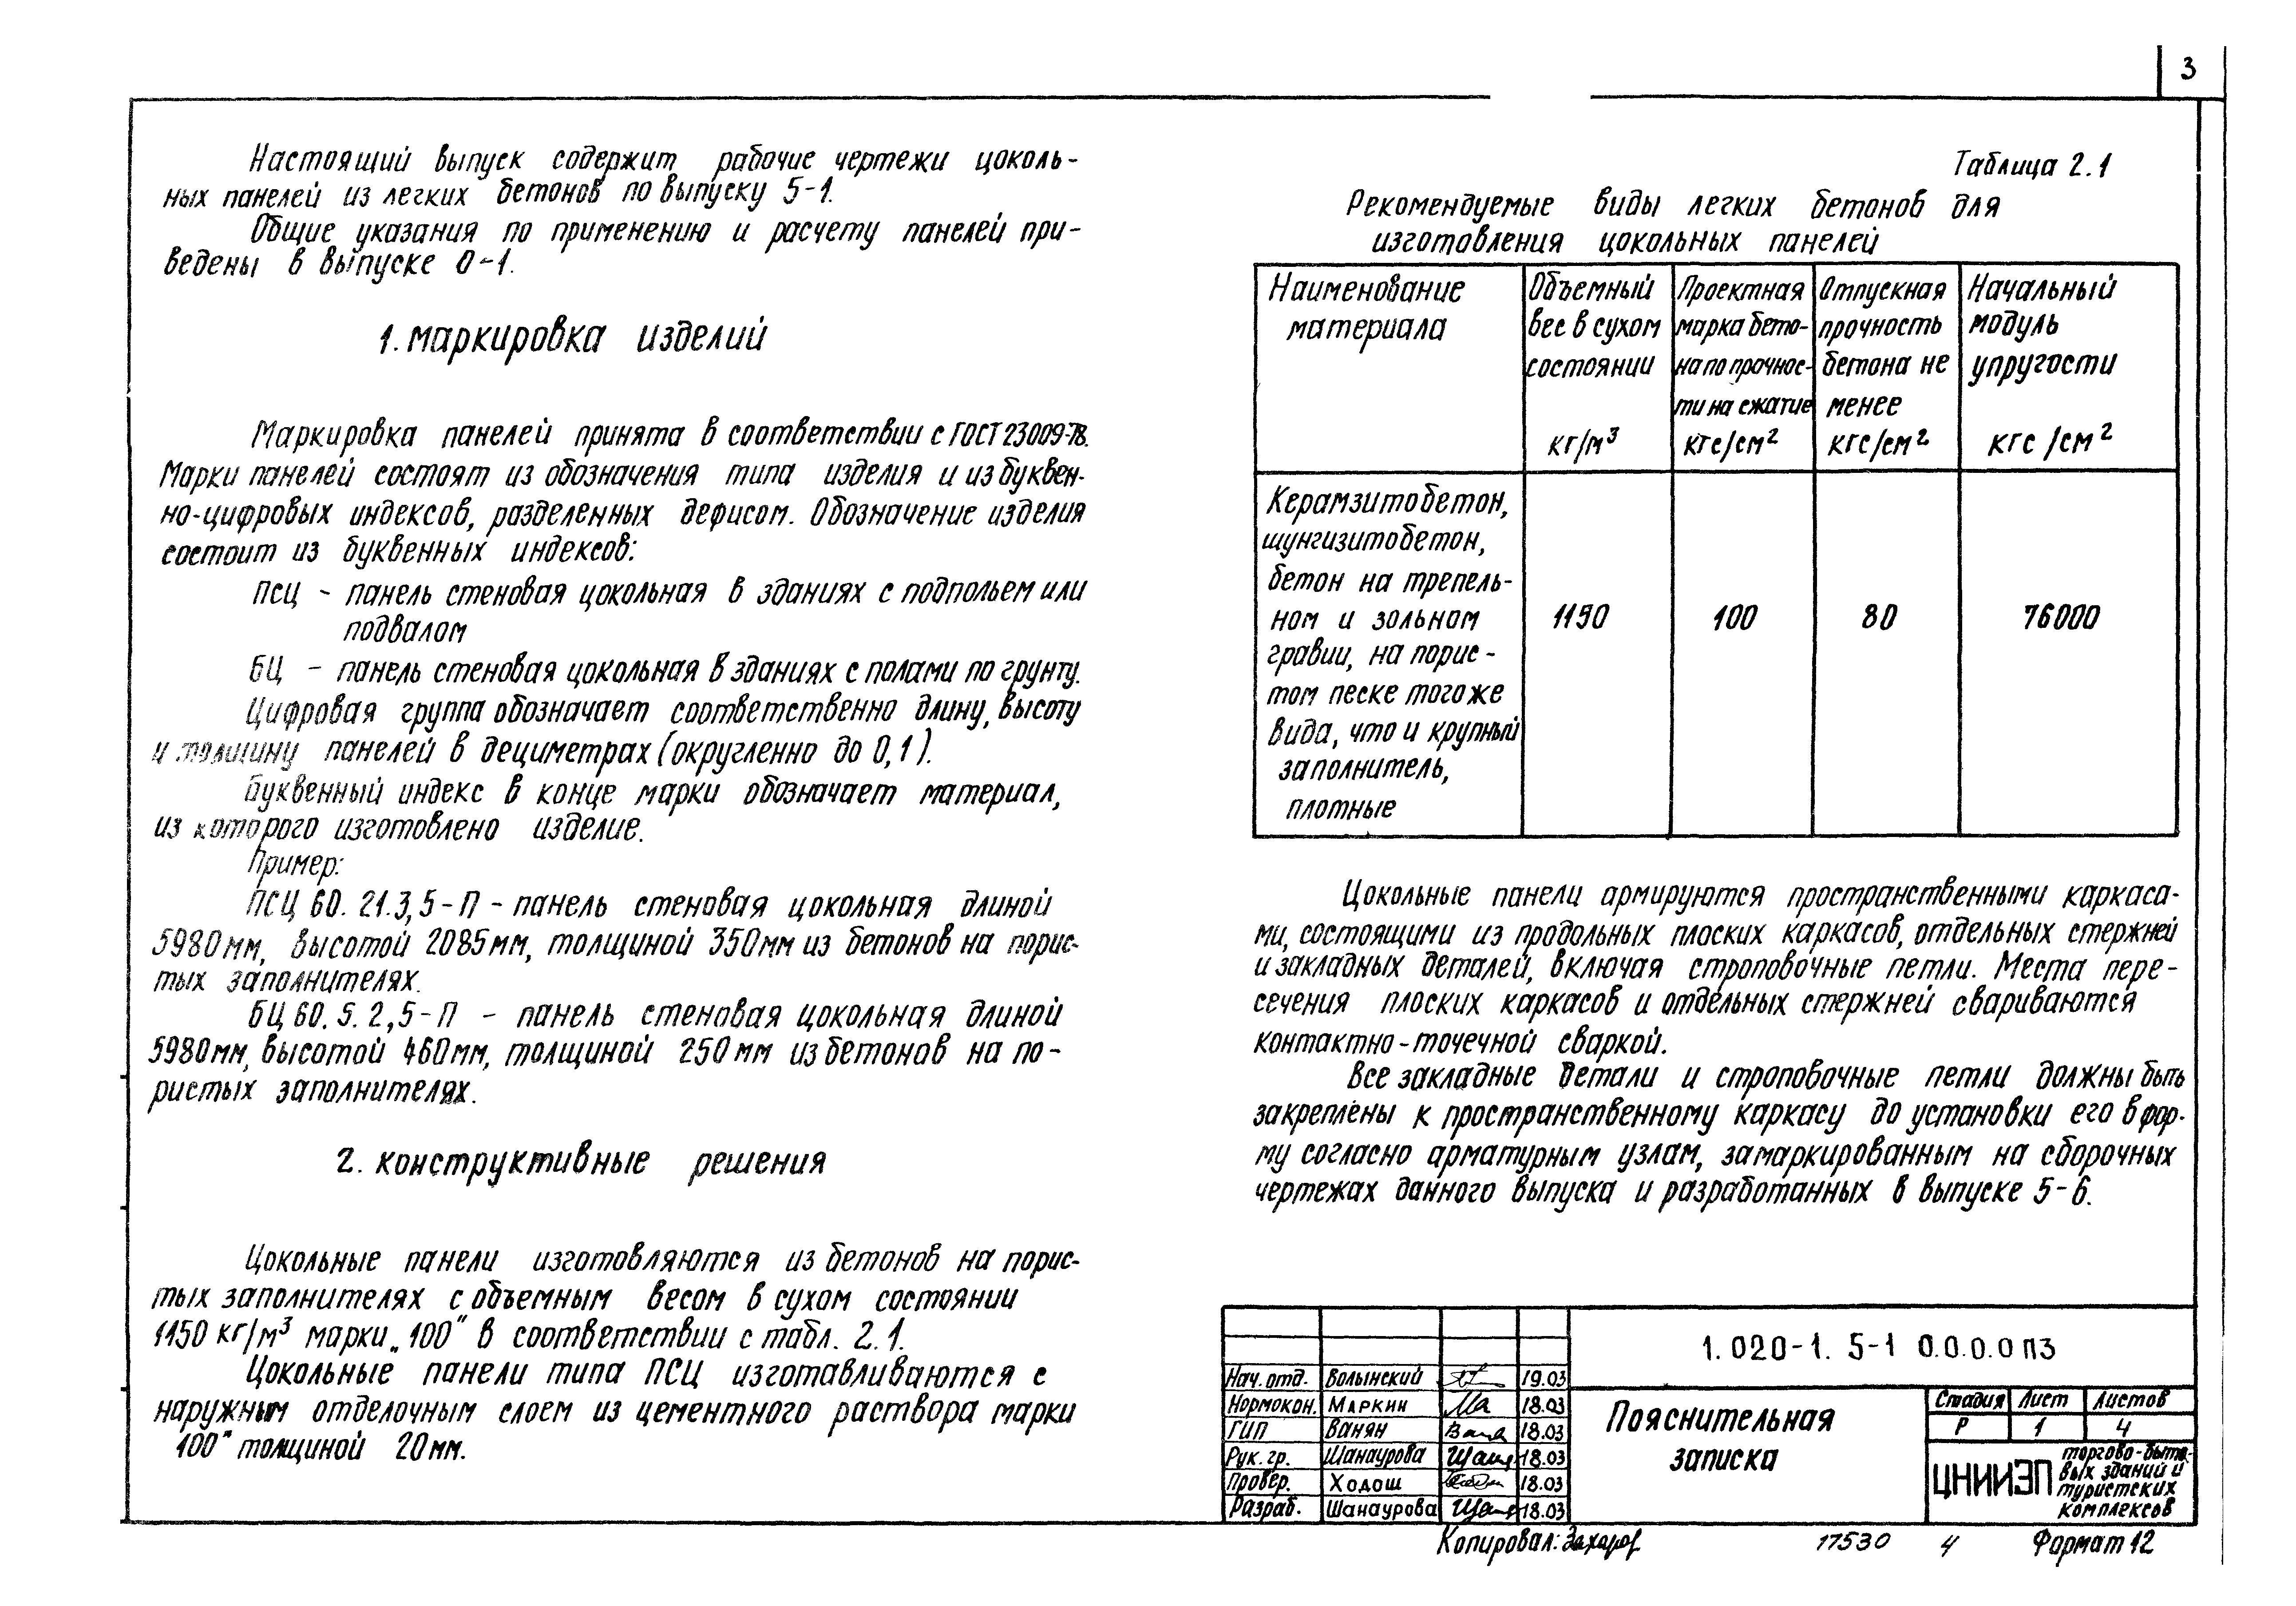 3
Настоящий выпуск содержит рабочие чертежи цоколь-
ных панелей из легких бетонов по выпуску 5-1.
Общие указания по применению и расчету панелей при-
ведены в выпуске 0-1.
1. маркировка изделий
Маркировка панелей принята в соответствии с ГОСТ 23009-78.
Марки панелей состоят из обозначения типа изделия и из буквен-
но-цифровых индексов, разделенных дефисом. Обозначение изделия
состоит из буквенных индексов:
ПСЦ - панель стеновая цокольная в зданиях с подпольем или
подвалом
БЦ - панель стеновая цокольная в зданиях с полами по грунту.
Цифровая группа обозначает соответственно длину, высоту
и толщину панелей в дециметрах (округленно до 0,1).
Буквенный индекс в конце марки обозначает материал,
из которого изготовлено изделие.
Пример:
ПСЦ 60. 21. 3,5-П - панель стеновая цокольная длиной
5980мм, высотой 2085мм, толщиной 350мм из бетонов на порис-
тых заполнителях.
БЦ 60. 5. 2,5-П - панель стеновая цокольная длиной
5980мм, высотой 460мм, толщиной 250мм из бетонов на по-
ристых заполнителях.
2. конструктивные решения
Цокольные панели изготовляются из бетонов на порис-
тых заполнителях с объемным весом в сухом состоянии
1150 кг/м³ марки „100" в соответствии с табл. 2.1.
Цокольные панели типа ПСЦ изготавливаются с
наружным отделочным слоем из цементного раствора марки
100" толщиной 20мм.
Таблица 2.1
Рекомендуемые виды легких бетонов для
изготовления цокольных панелей
Наименование материала
Объемный вес в сухом состоянии кг/м³
Проектная марка бето- на по прочнос- ти на сжатие кгс/см²
Отпускная прочность бетона не менее кгс/см²
Начальный модуль упругости кгс/см²
Керамзитобетон,
шунгизитобетон,
бетон на трепель-
ном и зольном 1150 100 80 76000
гравии, на порис-
том песке того же
вида, что и крупный
заполнитель,
плотные
Цокольные панели армируются пространственными каркаса-
ми, состоящими из продольных плоских каркасов, отдельных стержней
и закладных деталей, включая строповочные петли. Места пере-
сечения плоских каркасов и отдельных стержней свариваются
контактно-точечной сваркой.
Все закладные детали и строповочные петли должны быть
закреплены к пространственному каркасу до установки его в фор-
му согласно арматурным узлам, замаркированным на сборочных
чертежах данного выпуска и разработанных в выпуске 5-6.
1. 020-1. 5-1 0.0.0.0 ПЗ
Нач. отд. Волынский 19.03
Нормокон. Маркин 18.03
ГИП Ванян 18.03
Рук. гр. Шанаурова 18.03
Провер. Ходош 18.03
Разраб. Шанаурова 18.03
Пояснительная
записка
Стадия Лист Листов
Р 1 4
ЦНИИЭП торгово-быто-
вых зданий и
туристских
комплексов
Копировал: Захаров 17530 4 Формат 12